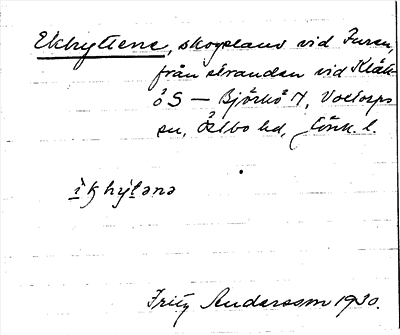 Ekhyttene, skogsland vid Furen,
från stranden vid Kläk-
ö S — Björkö N, Voxtorps
sn, Östbo hd, Jönk. l.
i̱khyt̠ənə
Fritz Andersson 1930.